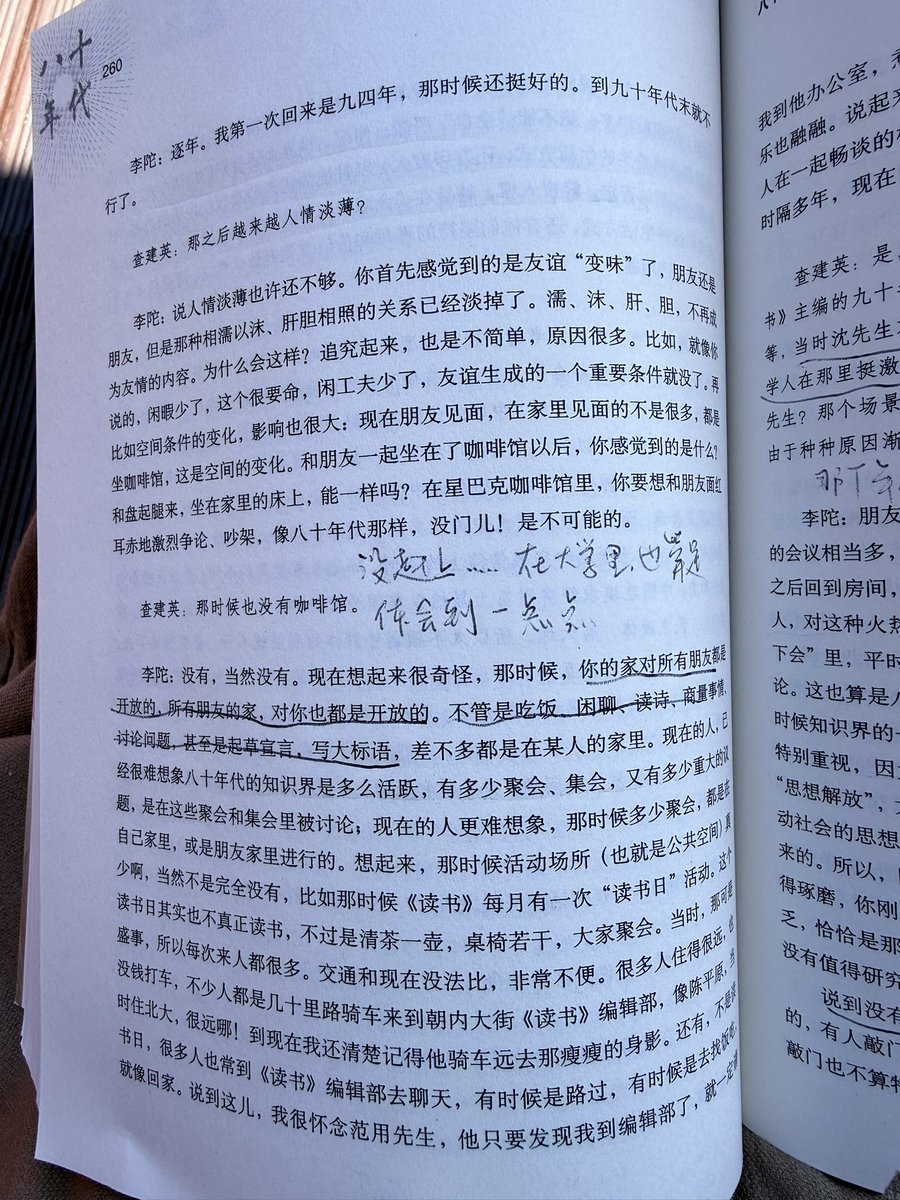 八十
年代
260
李陀：逐年。我第一次回来是九四年，那时候还挺好的。到九十年代末就不
行了。
查建英：那之后越来越人情淡薄？
李陀：说人情淡薄也许还不够。你首先感觉到的是友谊“变味”了，朋友还是
朋友，但是那种相濡以沫、肝胆相照的关系已经淡掉了。濡、沫、肝、胆，不再成
为友情的内容。为什么会这样？追究起来，也是不简单，原因很多。比如，就像你
说的，闲暇少了，这个很要命，闲工夫少了，友谊生成的一个重要条件就没了。再
比如空间条件的变化，影响也很大：现在朋友见面，在家里见面的不是很多，都是
坐咖啡馆，这是空间的变化。和朋友一起坐在了咖啡馆以后，你感觉到的是什么？
和盘起腿来，坐在家里的床上，能一样吗？在星巴克咖啡馆里，你要想和朋友面红
耳赤地激烈争论、吵架，像八十年代那样，没门儿！是不可能的。
没赶上……在大学里也算是
体会到一点点
查建英：那时候也没有咖啡馆。
李陀：没有，当然没有。现在想起来很奇怪，那时候，你的家对所有朋友都是
开放的，所有朋友的家，对你也都是开放的。不管是吃饭、闲聊、读诗、商量事情、
讨论问题，甚至是起草宣言，写大标语，差不多都是在某人的家里。现在的人，已
经很难想象八十年代的知识界是多么活跃，有多少聚会、集会，又有多少重大的议
题，是在这些聚会和集会里被讨论；现在的人更难想象，那时候多少聚会，都是在
自己家里，或是朋友家里进行的。想起来，那时候活动场所（也就是公共空间）真
少啊，当然不是完全没有，比如那时候《读书》每月有一次“读书日”活动。这个
读书日其实也不真正读书，不过是清茶一壶，桌椅若干，大家聚会。当时，那可是
盛事，所以每次来人都很多。交通和现在没法比，非常不便。很多人住得很远，也
没钱打车，不少人都是几十里路骑车来到朝内大街《读书》编辑部，像陈平原，当
时住北大，很远哪！到现在我还清楚记得他骑车远去那瘦瘦的身影。还有，不是读
书日，很多人也常到《读书》编辑部去聊天，有时候是路过，有时候是去找饭吃，
就像回家。说到这儿，我很怀念范用先生，他只要发现我到编辑部了，就一定
我到他办公室，
乐也融融。说起来
人在一起畅谈的
时隔多年，现在
查建英：是，
书》主编的九十
等，当时沈先生
学人在那里挺激
先生？那个场景
由于种种原因渐
李陀：朋友
的会议相当多，
之后回到房间，
人，对这种火热
下会”里，平时
论。这也算是八
时候知识界的一
特别重视，因
“思想解放”，
动社会的思想
来的。所以，
得琢磨，你刚
乏，恰恰是那
没有值得研究
说到没有
的，有人敲门
敲门也不算特